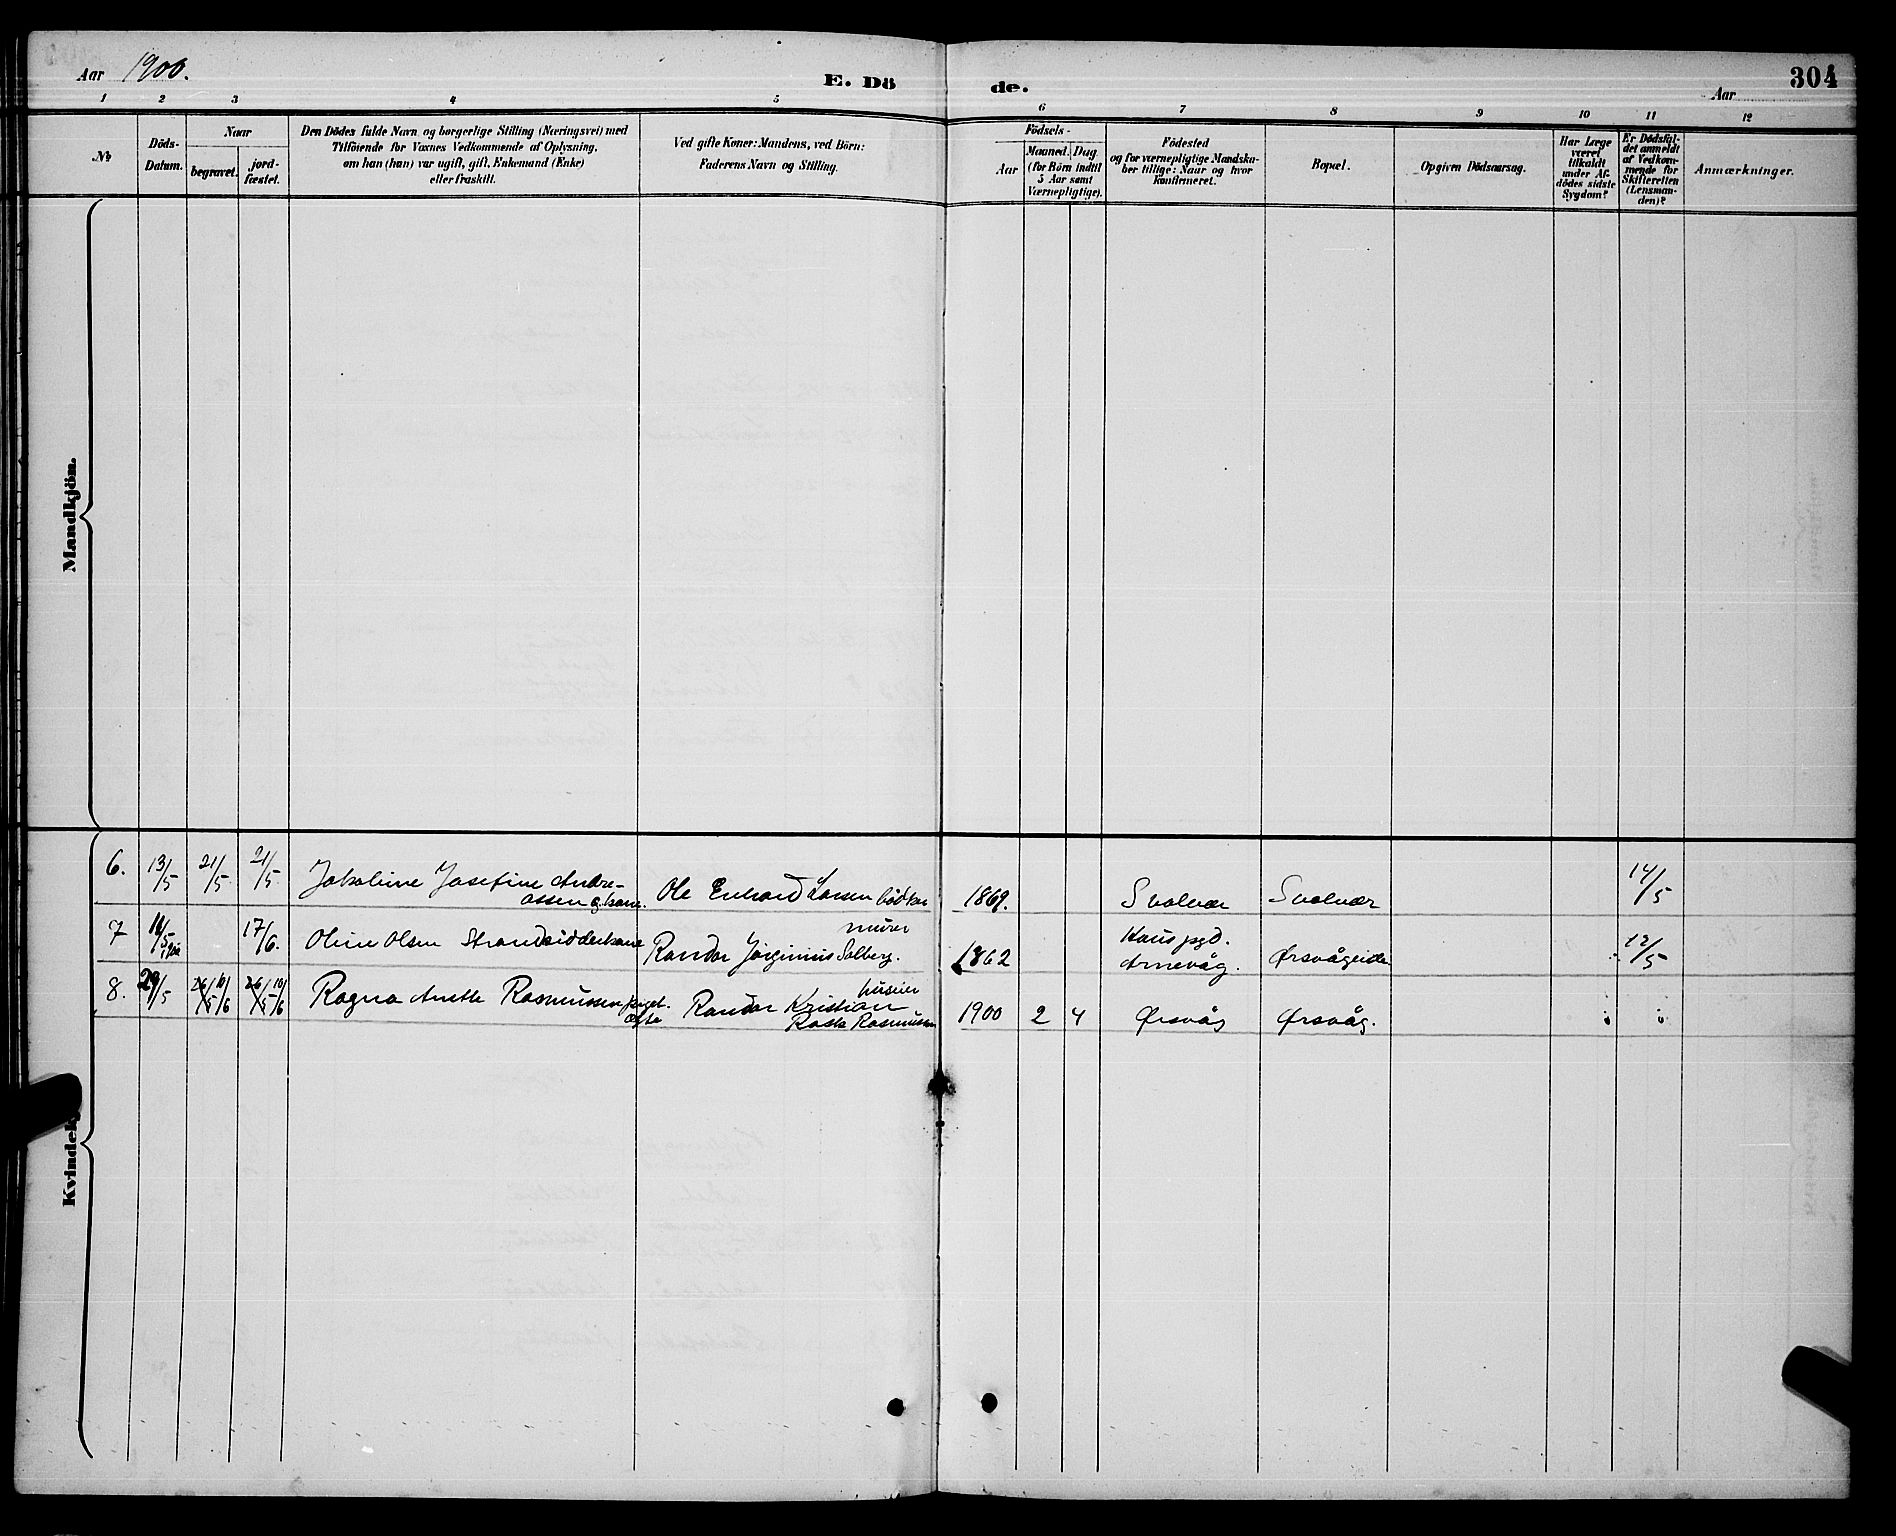 Aar 1900.
E. Dö
de.
Aar
304
1 2 3 4 5 6 7 8 9 10 11 12
№
Döds-
Datum.
Naar
begravet.
jord-
fæstet.
Den Dödes fulde Navn og borgerlige Stilling (Næringsvei) med
Tilföiende for Voxnes Vedkommende af Oplysning,
om han (hun) var ugift, gift, Enkemand (Enke)
eller fraskilt.
Ved gifte Koner: Mandens, ved Börn:
Faderens Navn og Stilling.
Födsels-
Aar
Maaned. Dag
(for Börn indtil
5 Aar samt
Værnepligtige).
Födested
og for værnepligtige Mandska-
ber tillige: Naar og hvor
konfirmeret.
Bopæl.
Opgiven Dödsaarsag.
Har Læge
været
tilkaldt
under Af-
dödes sidste
Sygdom?
Er Dödsfal-
det anmeldt
af Vedkom-
mende for
Skifteretten
(Lensman-
den)?
Anmærkninger.
Mandkjön.
6. 13/5 21/5 21/5 Jakobine Josefine Andre-
assen g. kone. Ole Enhard Larsen bödker 1869. Svolvær Svolvær 14/5
7 17/6. Oline Olsen Strandsidderkone
murer
Randor Jörginius Solberg. 1862
Arnevåg. Ørsvågeide 12/5
8. 29/5 26/5 10/6 26/5 10/6 Ragna Anette Rasmussen
huseier
Randor Kristian
Rask Rasmussen 1900 2 4 Ørsvåg Ørsvåg. " "
Kvindek